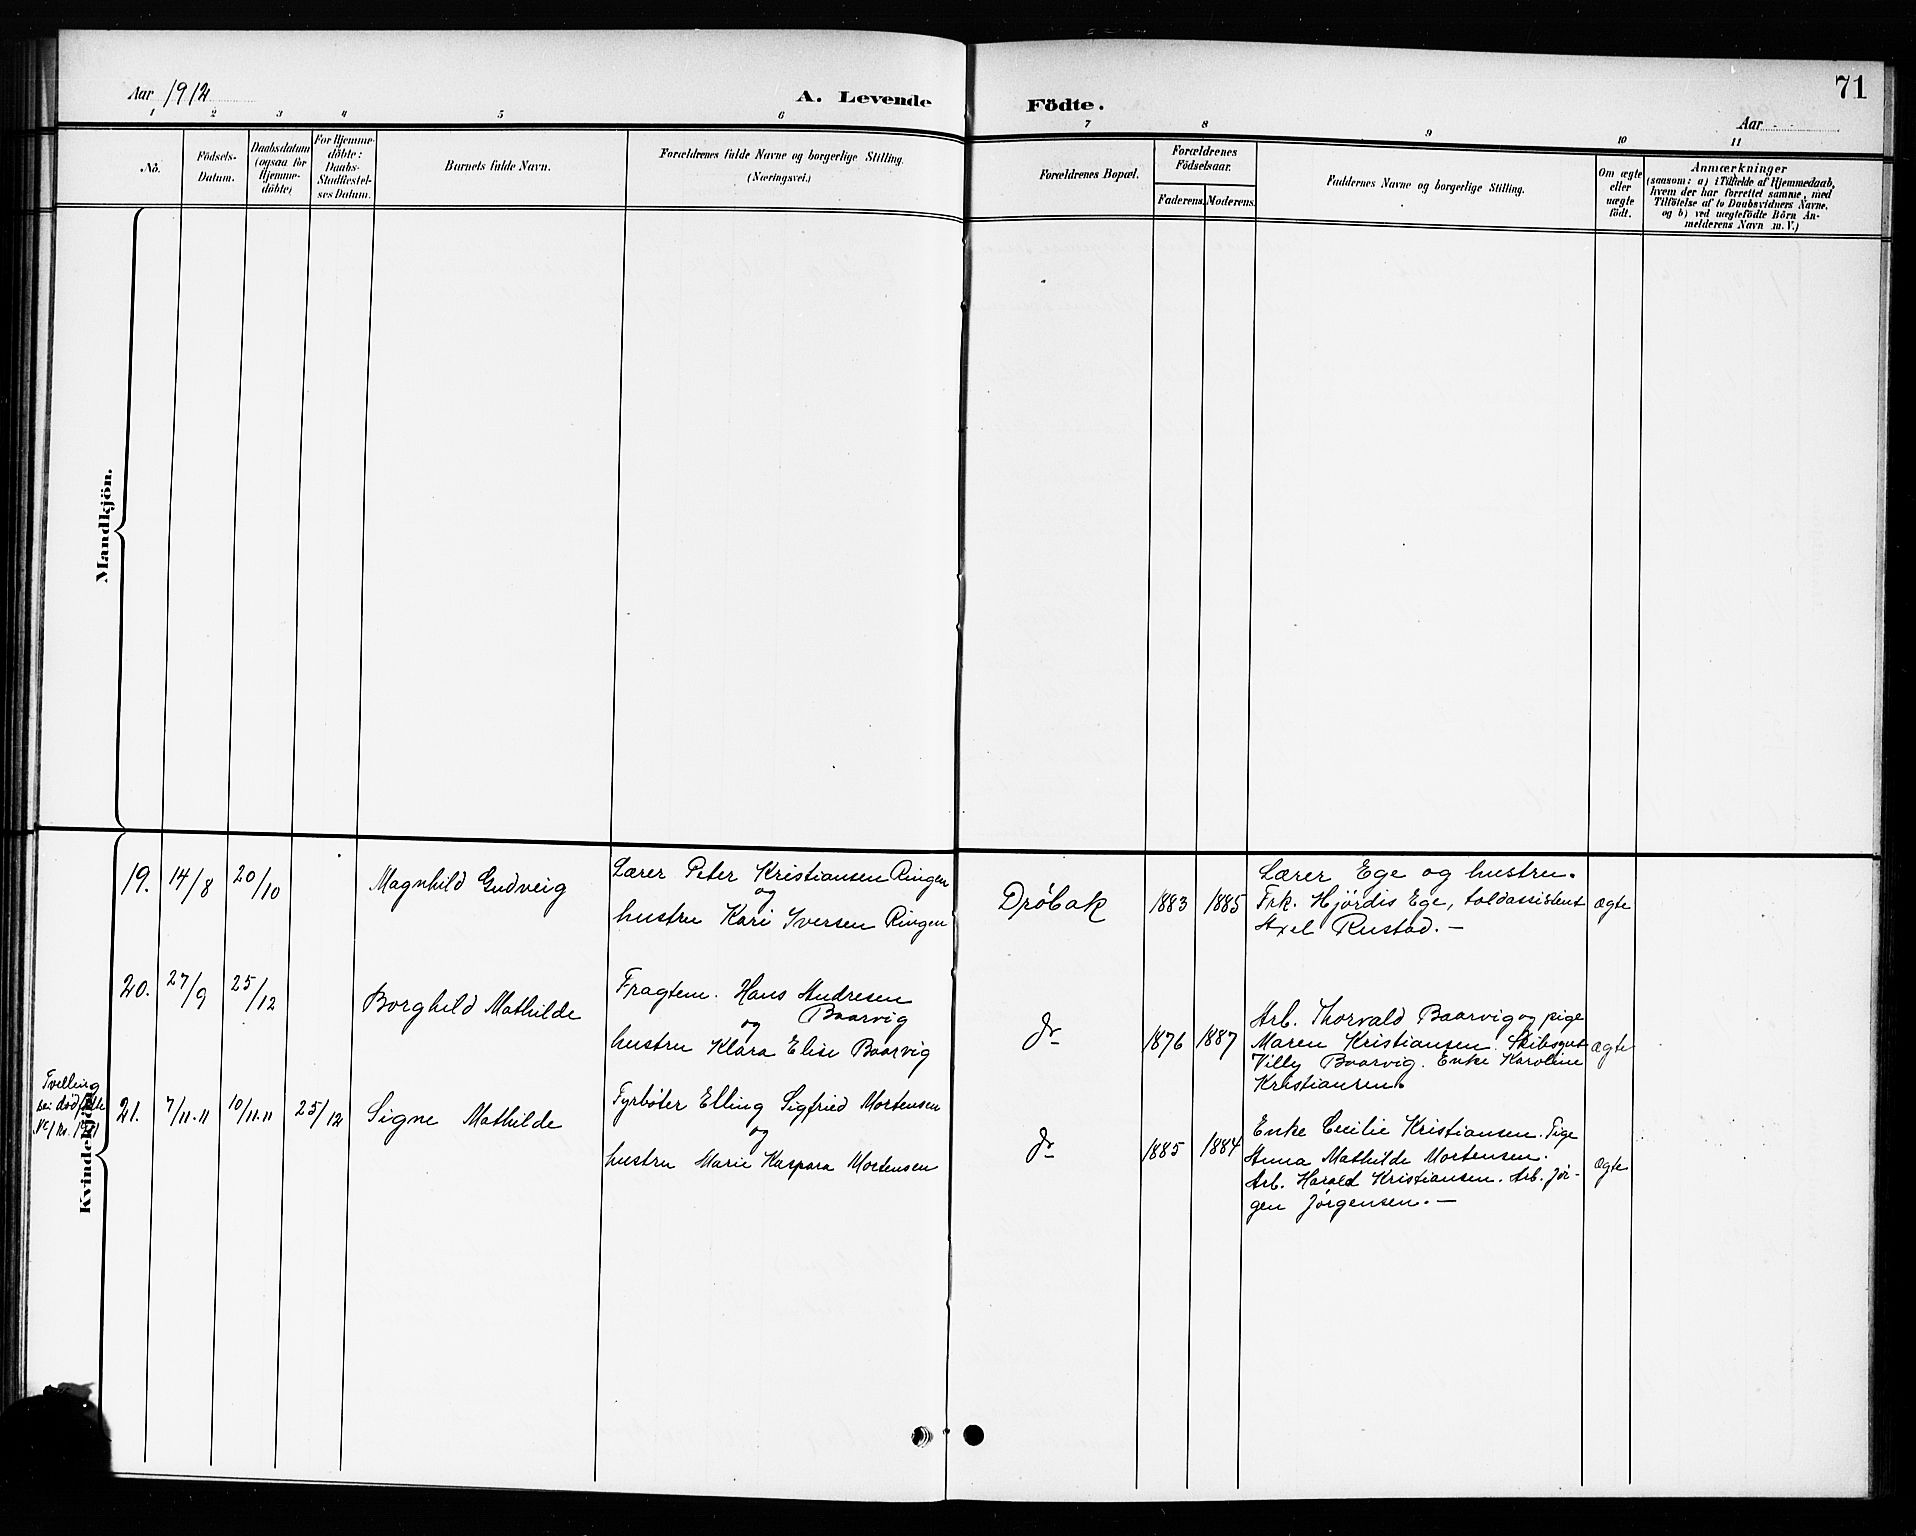 Aar 1912
A. Levende
Födte.
71
Aar
1 2 3 4 5 6 7 8 9 10 11
No.
Födsels-
Datum.
Daabsdatum
(ogsaa for
Hjemme-
döbte)
For Hjemme-
döbte:
Daabs-
Stadfæstel-
ses Datum.
Barnets fulde Navn.
Forældrenes fulde Navne og borgerlige Stilling.
(Næringsvei.)
Forældrenes Bopæl.
Forældrenes
Födselsaar.
Faderens. Moderens.
Faddernes Navne og borgerlige Stilling.
Om ægte
eller
uægte
födt.
Anmærkninger
(saasom: a) i Tilfælde af Hjemmedaab,
hvem der har forrettet samme, med
Tilföielse af to Daabsvidners Navne.
og b) ved uægtefödte Börn An-
melderens Navn m. V.)
Mandkjön.
Kvindekjön.
19. 14/8 20/10
Magnhild Gudveig
Lærer Peter Kristiansen Ringen
og
hustru Kari Iversen Ringen
Drøbak
1883 1885
Lærer Ege og hustru.
Frk. Hjørdis Ege, toldassistent
Axel Rustad. —
ægte
20. 27/9 25/12
Borghild Mathilde
Fragtem. Hans Andresen
Baarvig
og
hustru Klara Elise Baarvig
do
1876 1887
Arb. Thorvald Baarvig og pige
Maren Kristiansen. Skibsgut
Villy Baarvig. Enke Karoline
Kristiansen.
ægte
Tvilling
21. 7/11.11 10/11.11 25/12
Signe Mathilde
Fyrbøter Elling Sigfried Mortensen
og
hustru Marie Kaspara Mortensen
do
1885 1884
Enke Cecilie Kristiansen. Pige
Anna Mathilde Mortensen.
Arb. Harald Kristiansen. Arb. Jør-
gen Jørgensen. —
ægte